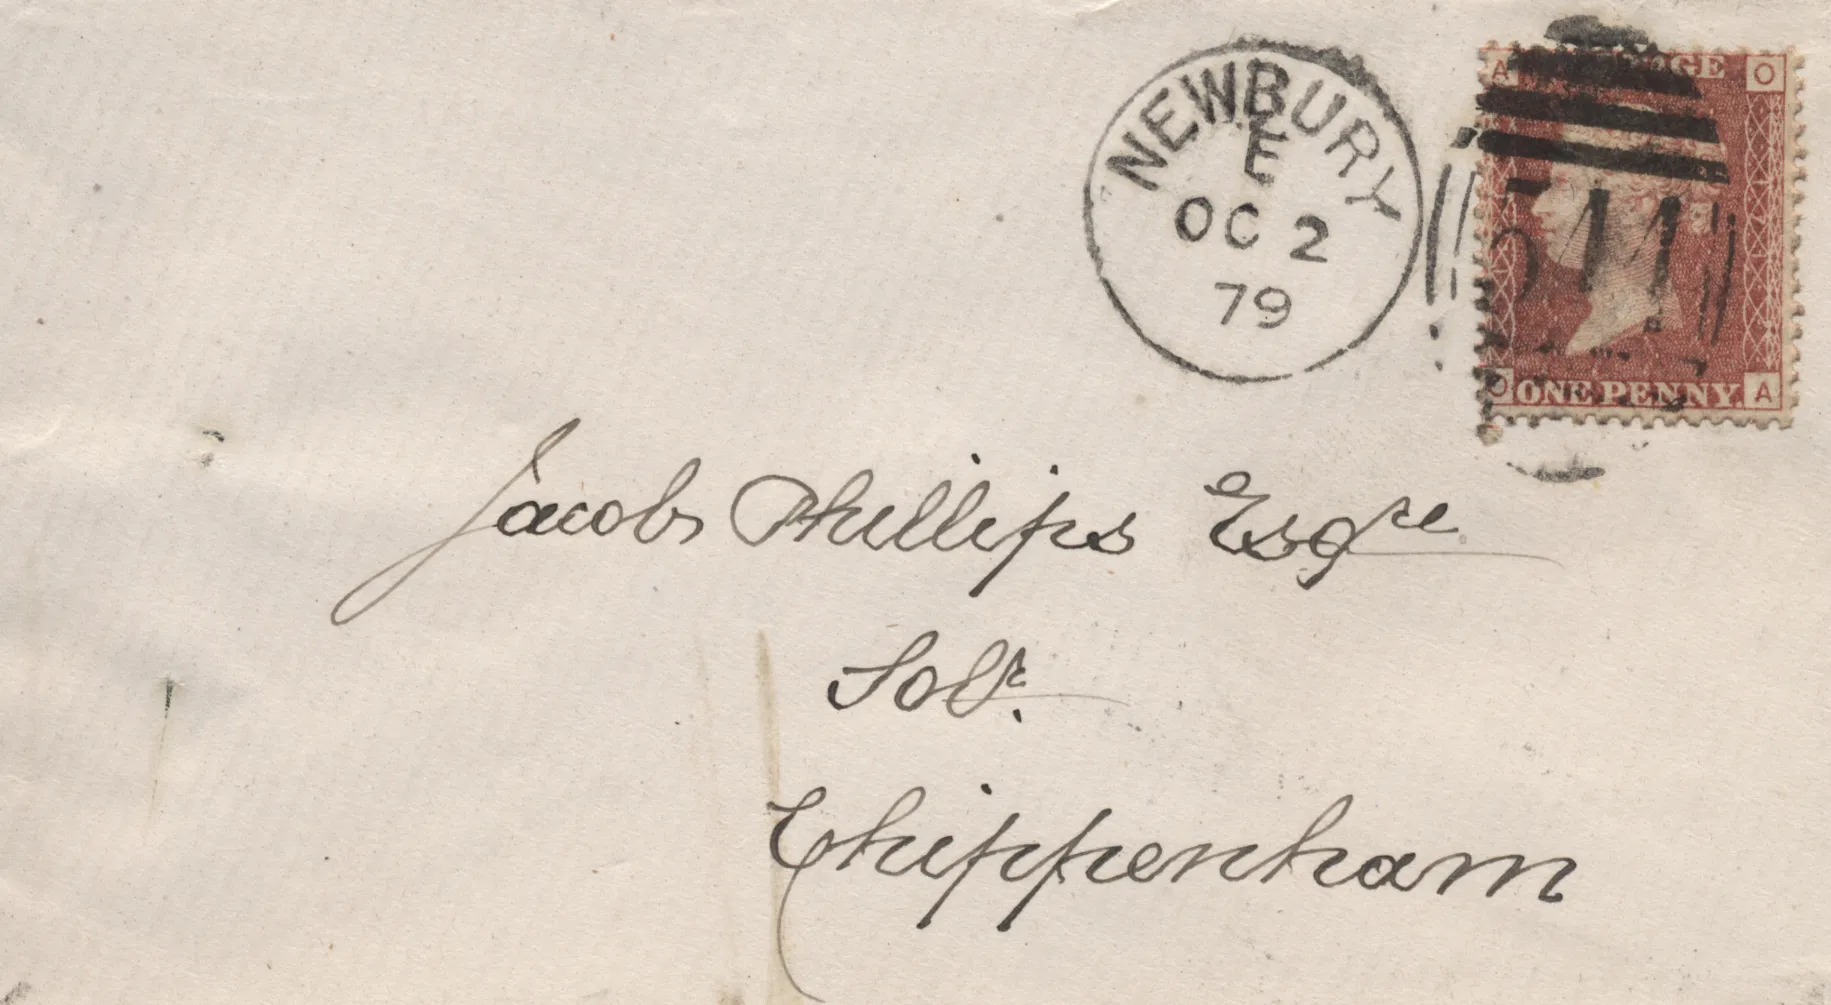 NEWBURY
E
OC 2
79
A O
O A
ONE PENNY.
544
Jacob Phillips Esqre
Solr.
Chippenham